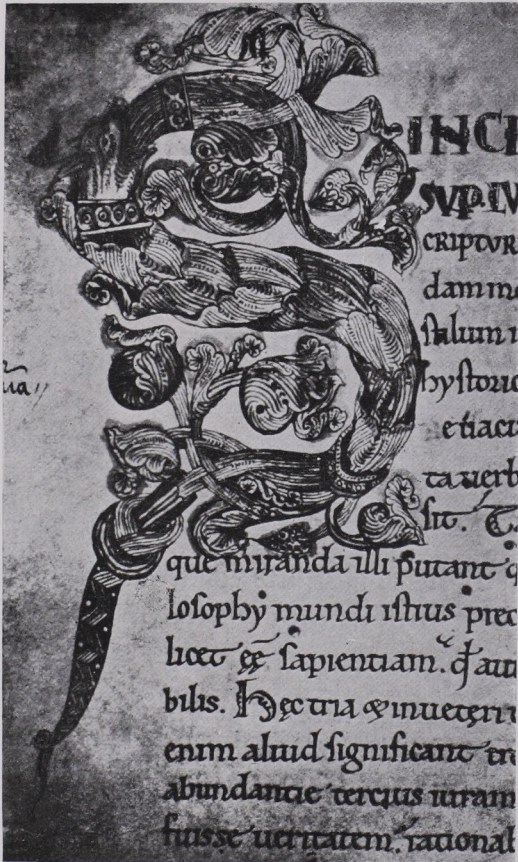 INCI
SVP. LV
CRIPTVR
dam mo
stalium
hystorio
etiaci
ta verb
sit. T
que miranda illi putant q
losophy mundi istius prec
licet ee sapientiam. qd aut
bilis. Hec tria & in ueteri
enim aliud significant
abundantie tercius utram
fuisse ueritatem. rational